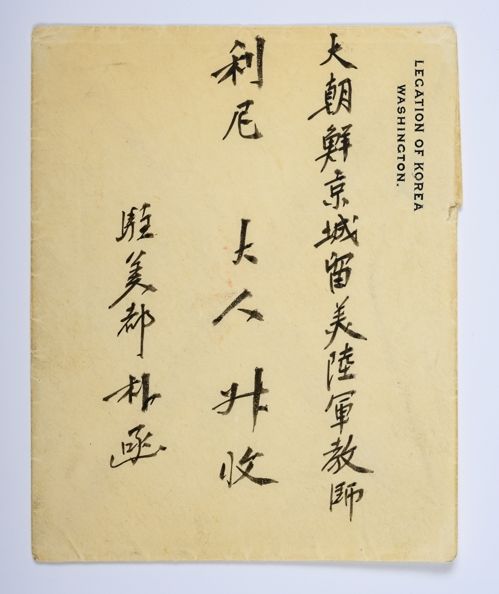 LEGATION OF KOREA
WASHINGTON.
大朝鮮京城留美陸軍教師
利尼 大人 升收
駐美都 朴函